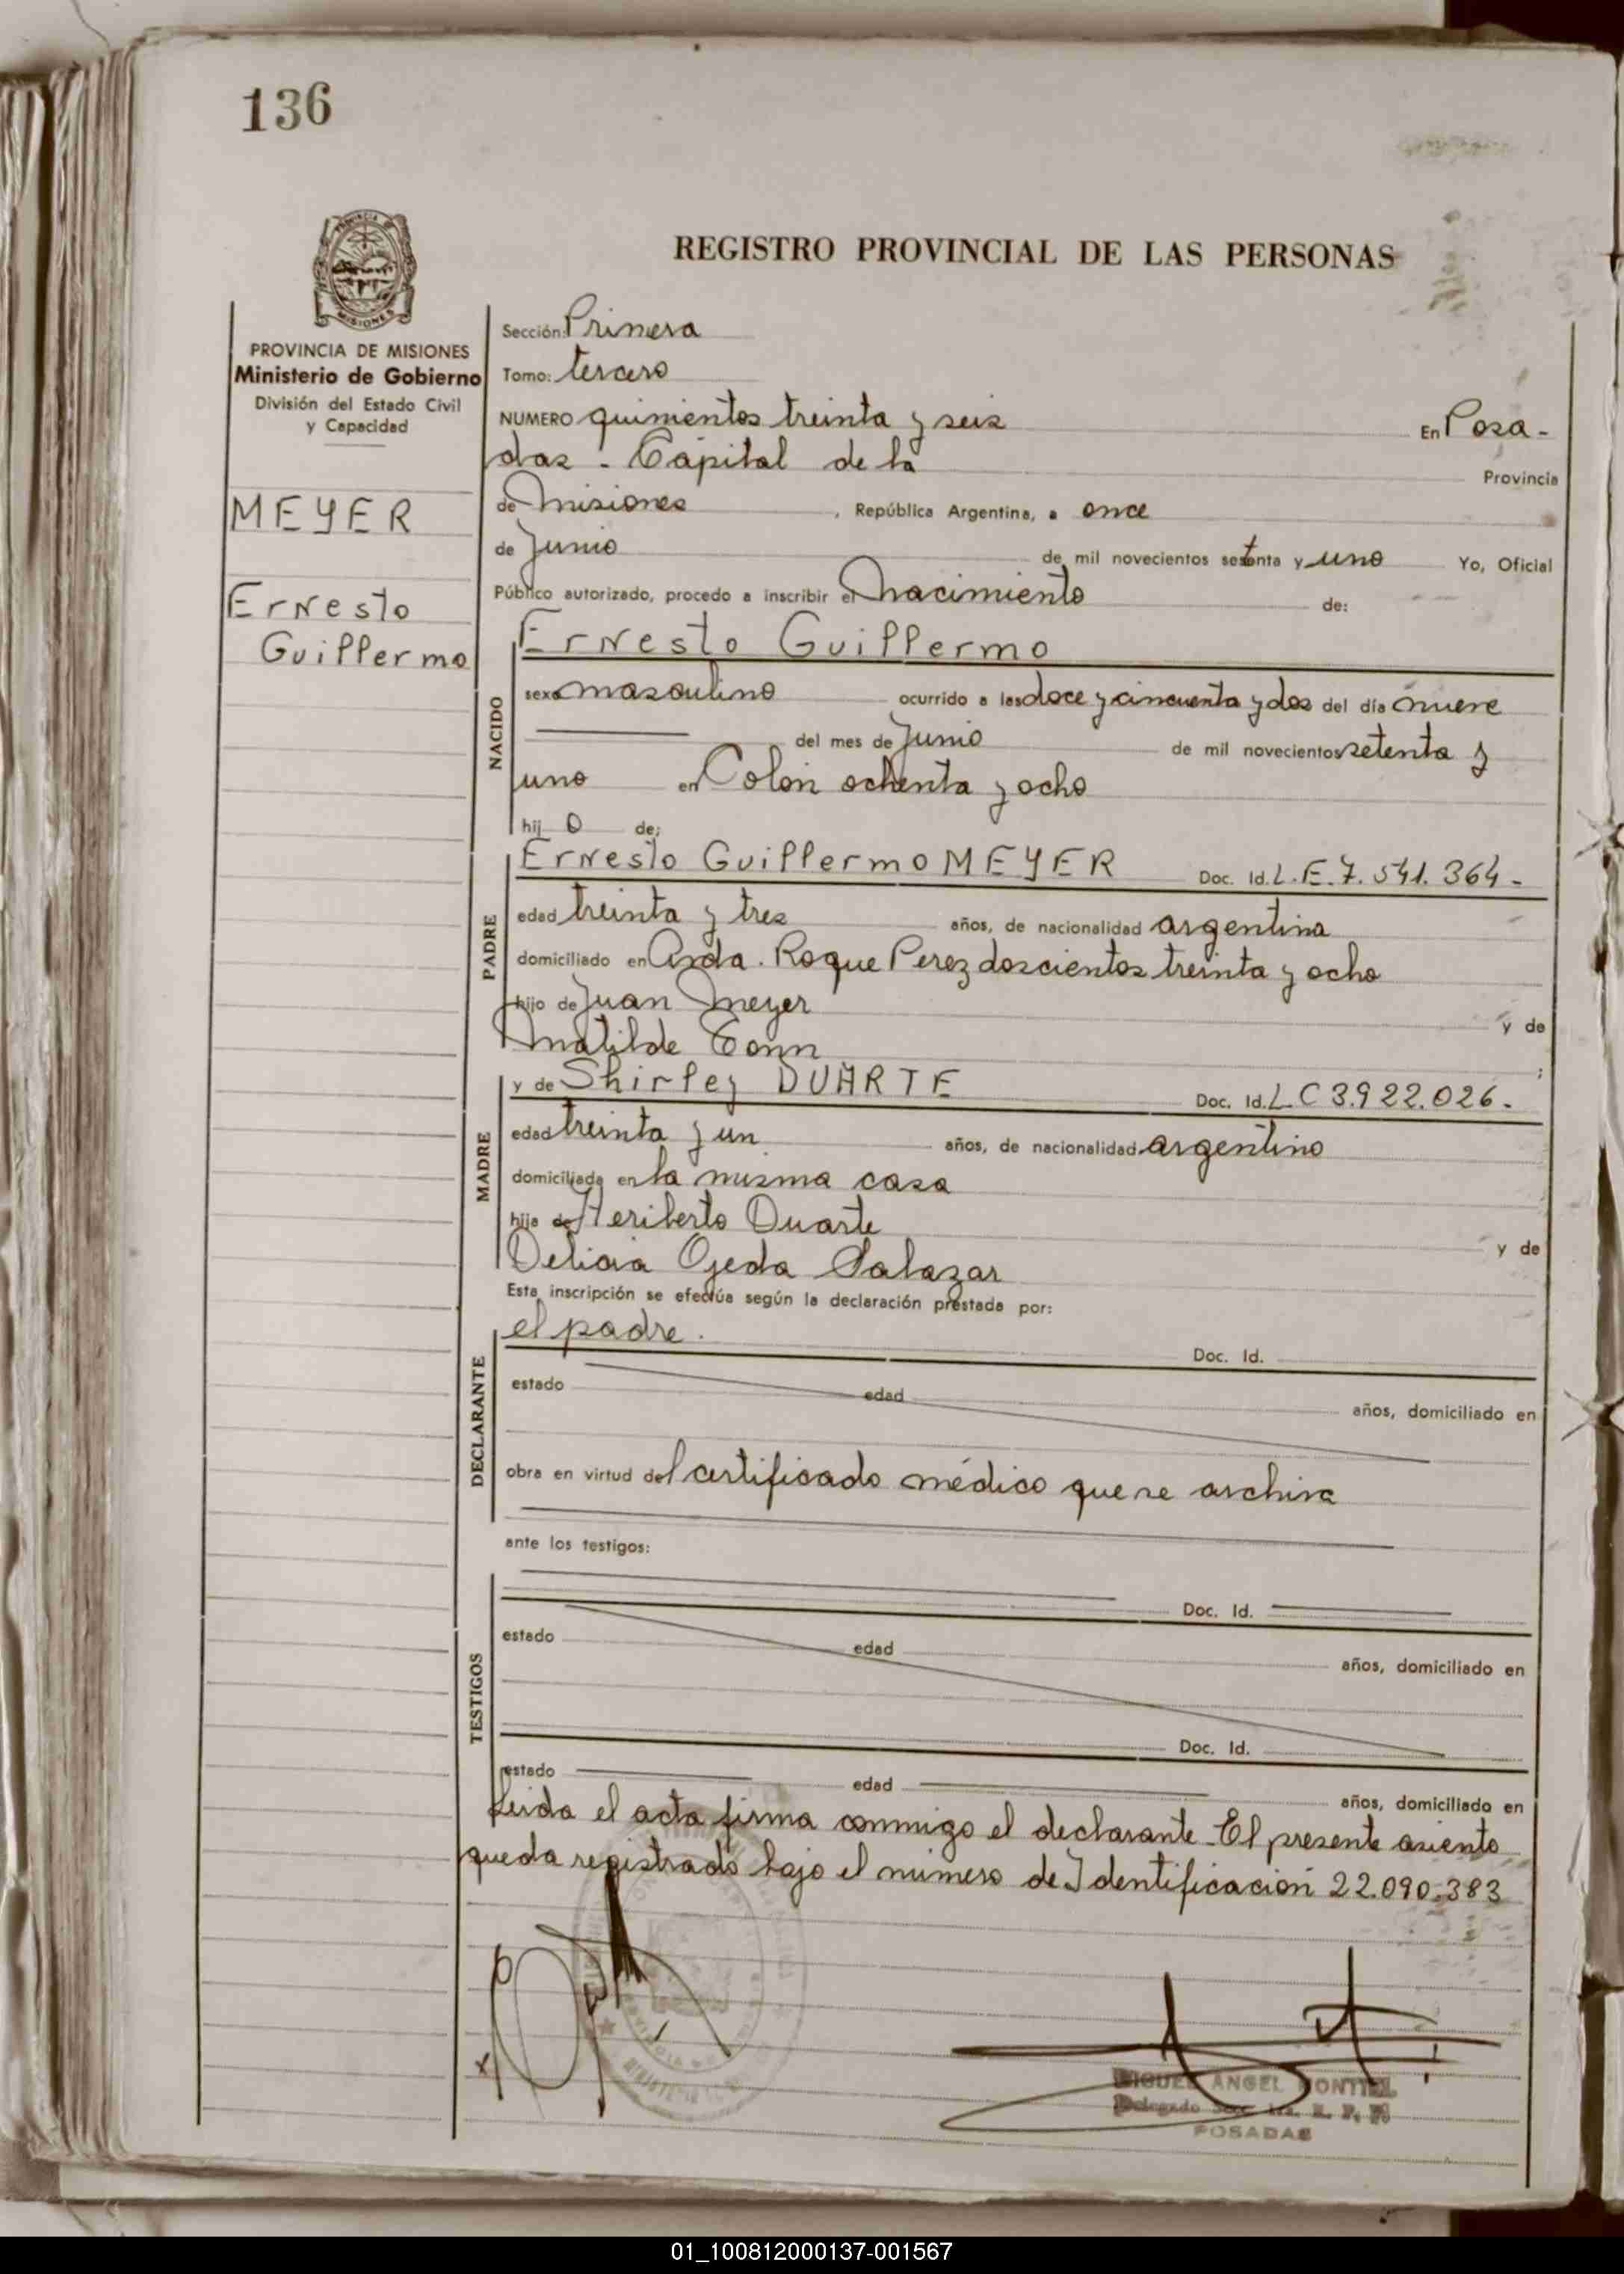 136
PROVINCIA DE
MISIONES
PROVINCIA DE MISIONES
Ministerio de Gobierno
División del Estado Civil
y Capacidad
MEYER
Ernesto
Guillermo
REGISTRO PROVINCIAL DE LAS PERSONAS
Sección: Primera
Tomo: tercero
NUMERO quinientos treinta y seis En Posa-
das - Capital de la Provincia
de Misiones, República Argentina, a once
de Junio de mil novecientos setenta y uno Yo, Oficial
Público autorizado, procedo a inscribir el nacimiento de:
NACIDO
Ernesto Guillermo
sexo masculino ocurrido a las doce y cincuenta y dos del día nueve
del mes de Junio de mil novecientos setenta y
uno en Colón ochenta y ocho
hijo de:
PADRE
Ernesto Guillermo MEYER Doc. Id. L.E. 7.541.364-
edad treinta y tres años, de nacionalidad argentina
domiciliado en Avda. Roque Perez doscientos treinta y ocho
hijo de Juan Meyer y de
Matilde Conn
MADRE
y de Shirley DUARTE Doc. Id. L C 3.922.026-
edad treinta y un años, de nacionalidad argentino
domiciliada en la misma casa
hija de Heriberto Duarte y de
Delicia Ojeda Salazar
Esta inscripción se efectúa según la declaración prestada por:
DECLARANTE
el padre. Doc. Id.
estado edad años, domiciliado en
obra en virtud del certificado médico que se archiva
ante los testigos:
TESTIGOS
Doc. Id.
estado edad años, domiciliado en
Doc. Id.
estado edad años, domiciliado en
Leida el acta firma conmigo el declarante - El presente asiento
queda registrado bajo el número de Identificación 22.090.383
MIGUEL ANGEL MONTIEL
Delegado Secc. 1ra. R. P. P.
POSADAS
01_100812000137-001567